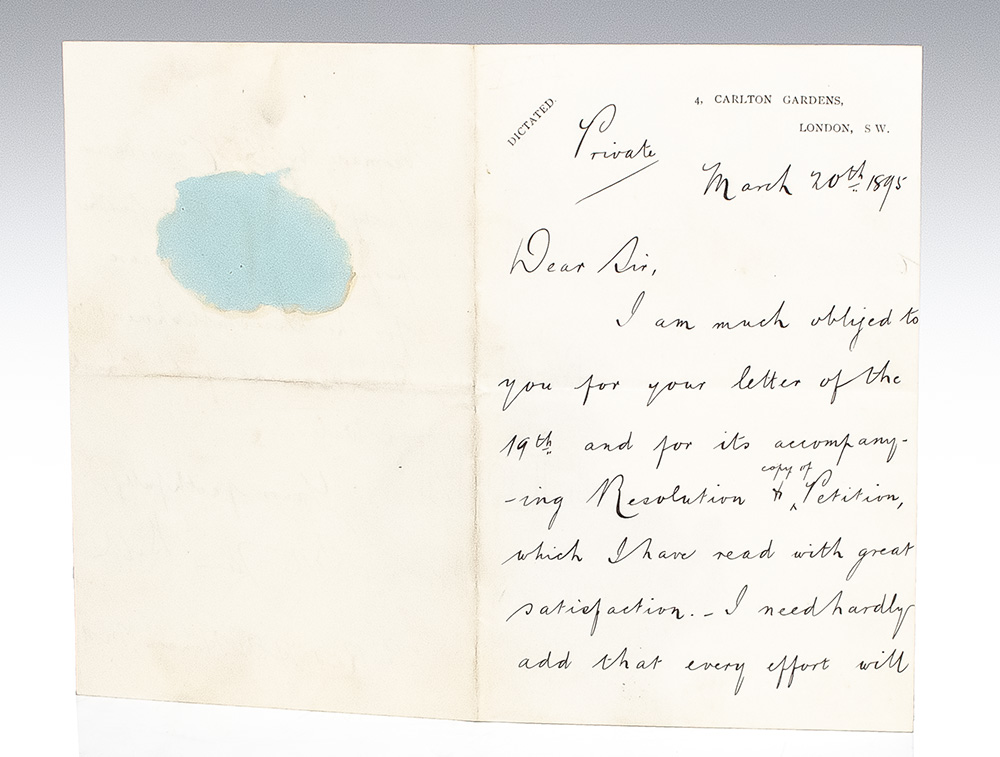 DICTATED.
4, CARLTON GARDENS,
LONDON, S W.
Private
March 20th 1895
Dear Sir,
I am much obliged to
you for your letter of the
19th and for its accompany-
-ing Resolution & copy of Petition,
which I have read with great
satisfaction. - I need hardly
add that every effort will